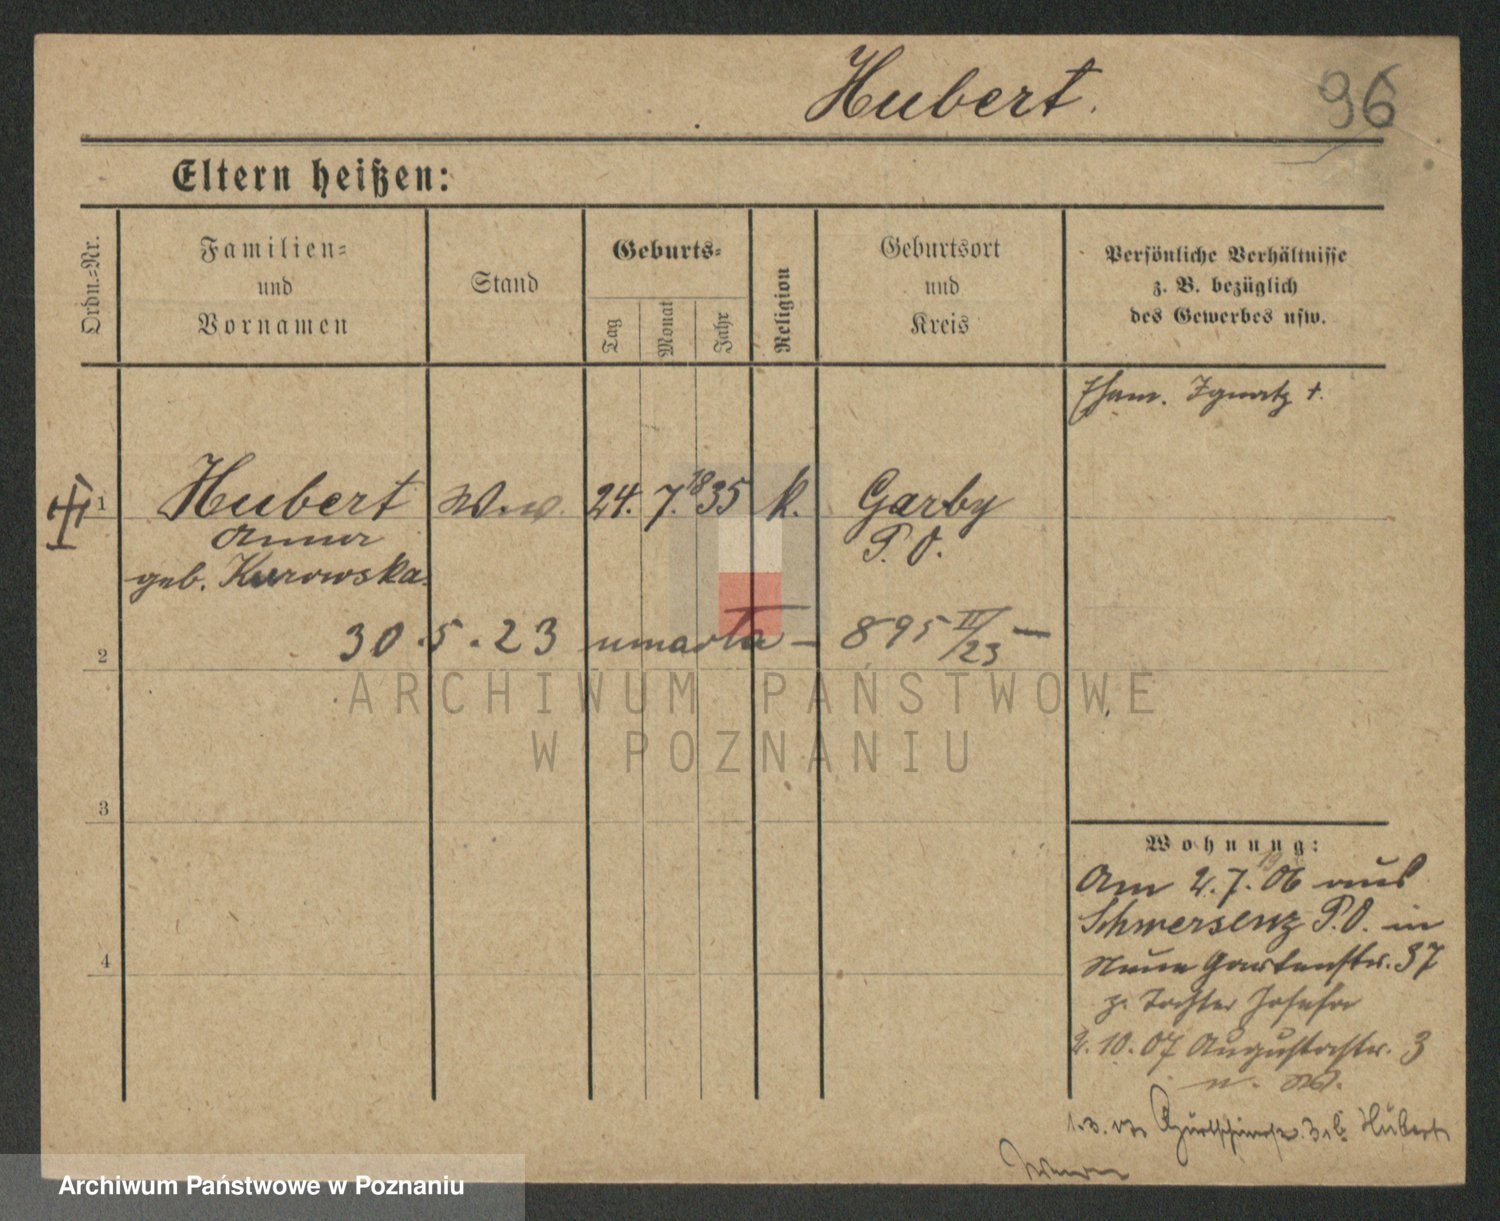 Hubert.
96
Eltern heißen:
Ordn.=Nr.
Familien=
und
Vornamen
Stand
Geburts=
Tag
Monat
Jahr
Religion
Geburtsort
und
Kreis
Persönliche Verhältnisse
z. B. bezüglich
des Gewerbes usw.
Eham. Ignatz +.
1
Hubert Ww. 24. 7. 1835 k. Garby
Anna P. O.
geb. Kurowska.
30.5.23 umarła – 895 II/23 –
2
ARCHIWUM PAŃSTWOWE
W POZNANIU
3
Wohnung:
Am 2.7.06 aus
Schwersenz P.O. in
Neue Gartenstr. 37
z. Tochter Josefa
4
2.10.07 Augustastr. 3
Hubert
Archiwum Państwowe w Poznaniu